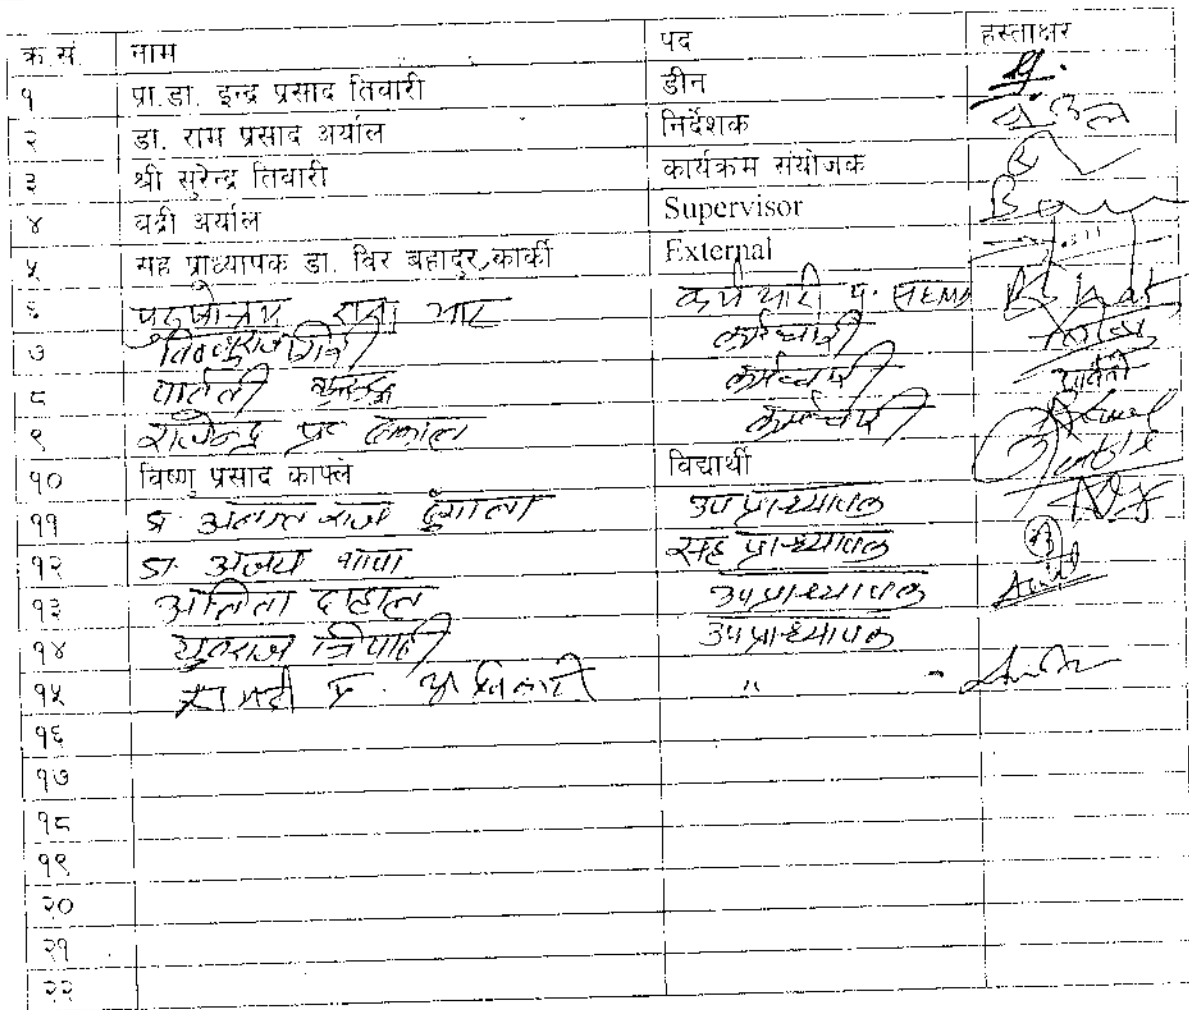 क्र.सं. नाम पद हस्ताक्षर
१ प्रा.डा. इन्द्र प्रसाद तिवारी डीन
२ डा. राम प्रसाद अर्याल निर्देशक
३ श्री सुरेन्द्र तिवारी कार्यक्रम संयोजक
४ बद्री अर्याल Supervisor
५ सह प्राध्यापक डा. विर बहादुर कार्की External
६ राना कर्मचारी
७ गिरी कर्मचारी
८ पार्वती कर्मचारी पार्वती
९ राजेन्द्र प्र ढकाल कर्मचारी
१० विष्णु प्रसाद काफ्ले विद्यार्थी
११ डा. अनन्त राज ढुंगाना उपप्राध्यापक
१२ डा. अजय थापा सह प्राध्यापक
१३ अनिता दाहाल उपप्राध्यापक
१४ युवराज त्रिपाठी उपप्राध्यापक
१५ प्र. अधिकारी "
१६
१७
१८
१९
२०
२१
२२